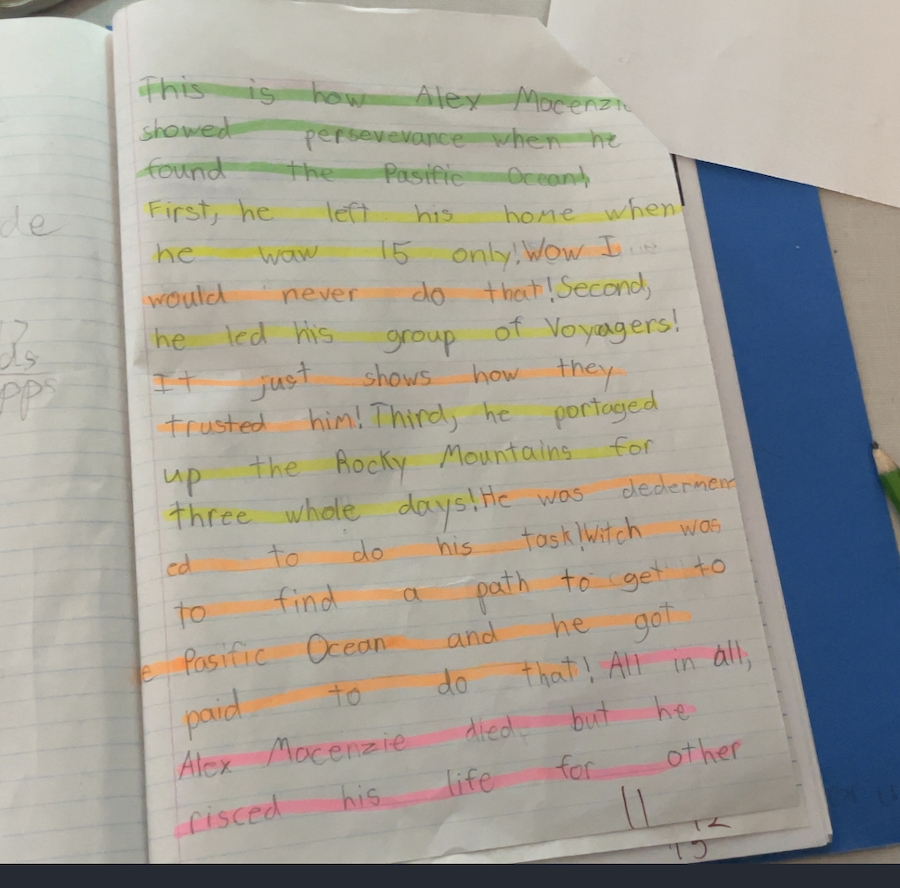 de
ds
pps
This is how Alex Macenzie
showed persevevance when he
found the Pasific Ocean!
First, he left his home when
he waw 15 only! Wow I
would never do that! Second,
he led his group of Voyagers!
It just shows how they
trusted him! Third, he portaged
up the Rocky Mountains for
three whole days! He was dedermen
ed to do his task! Witch was
to find a path to get to
e Pasific Ocean and he got
paid to do that! All in all,
Alex Macenzie died but he
risced his life for other
11
12
15